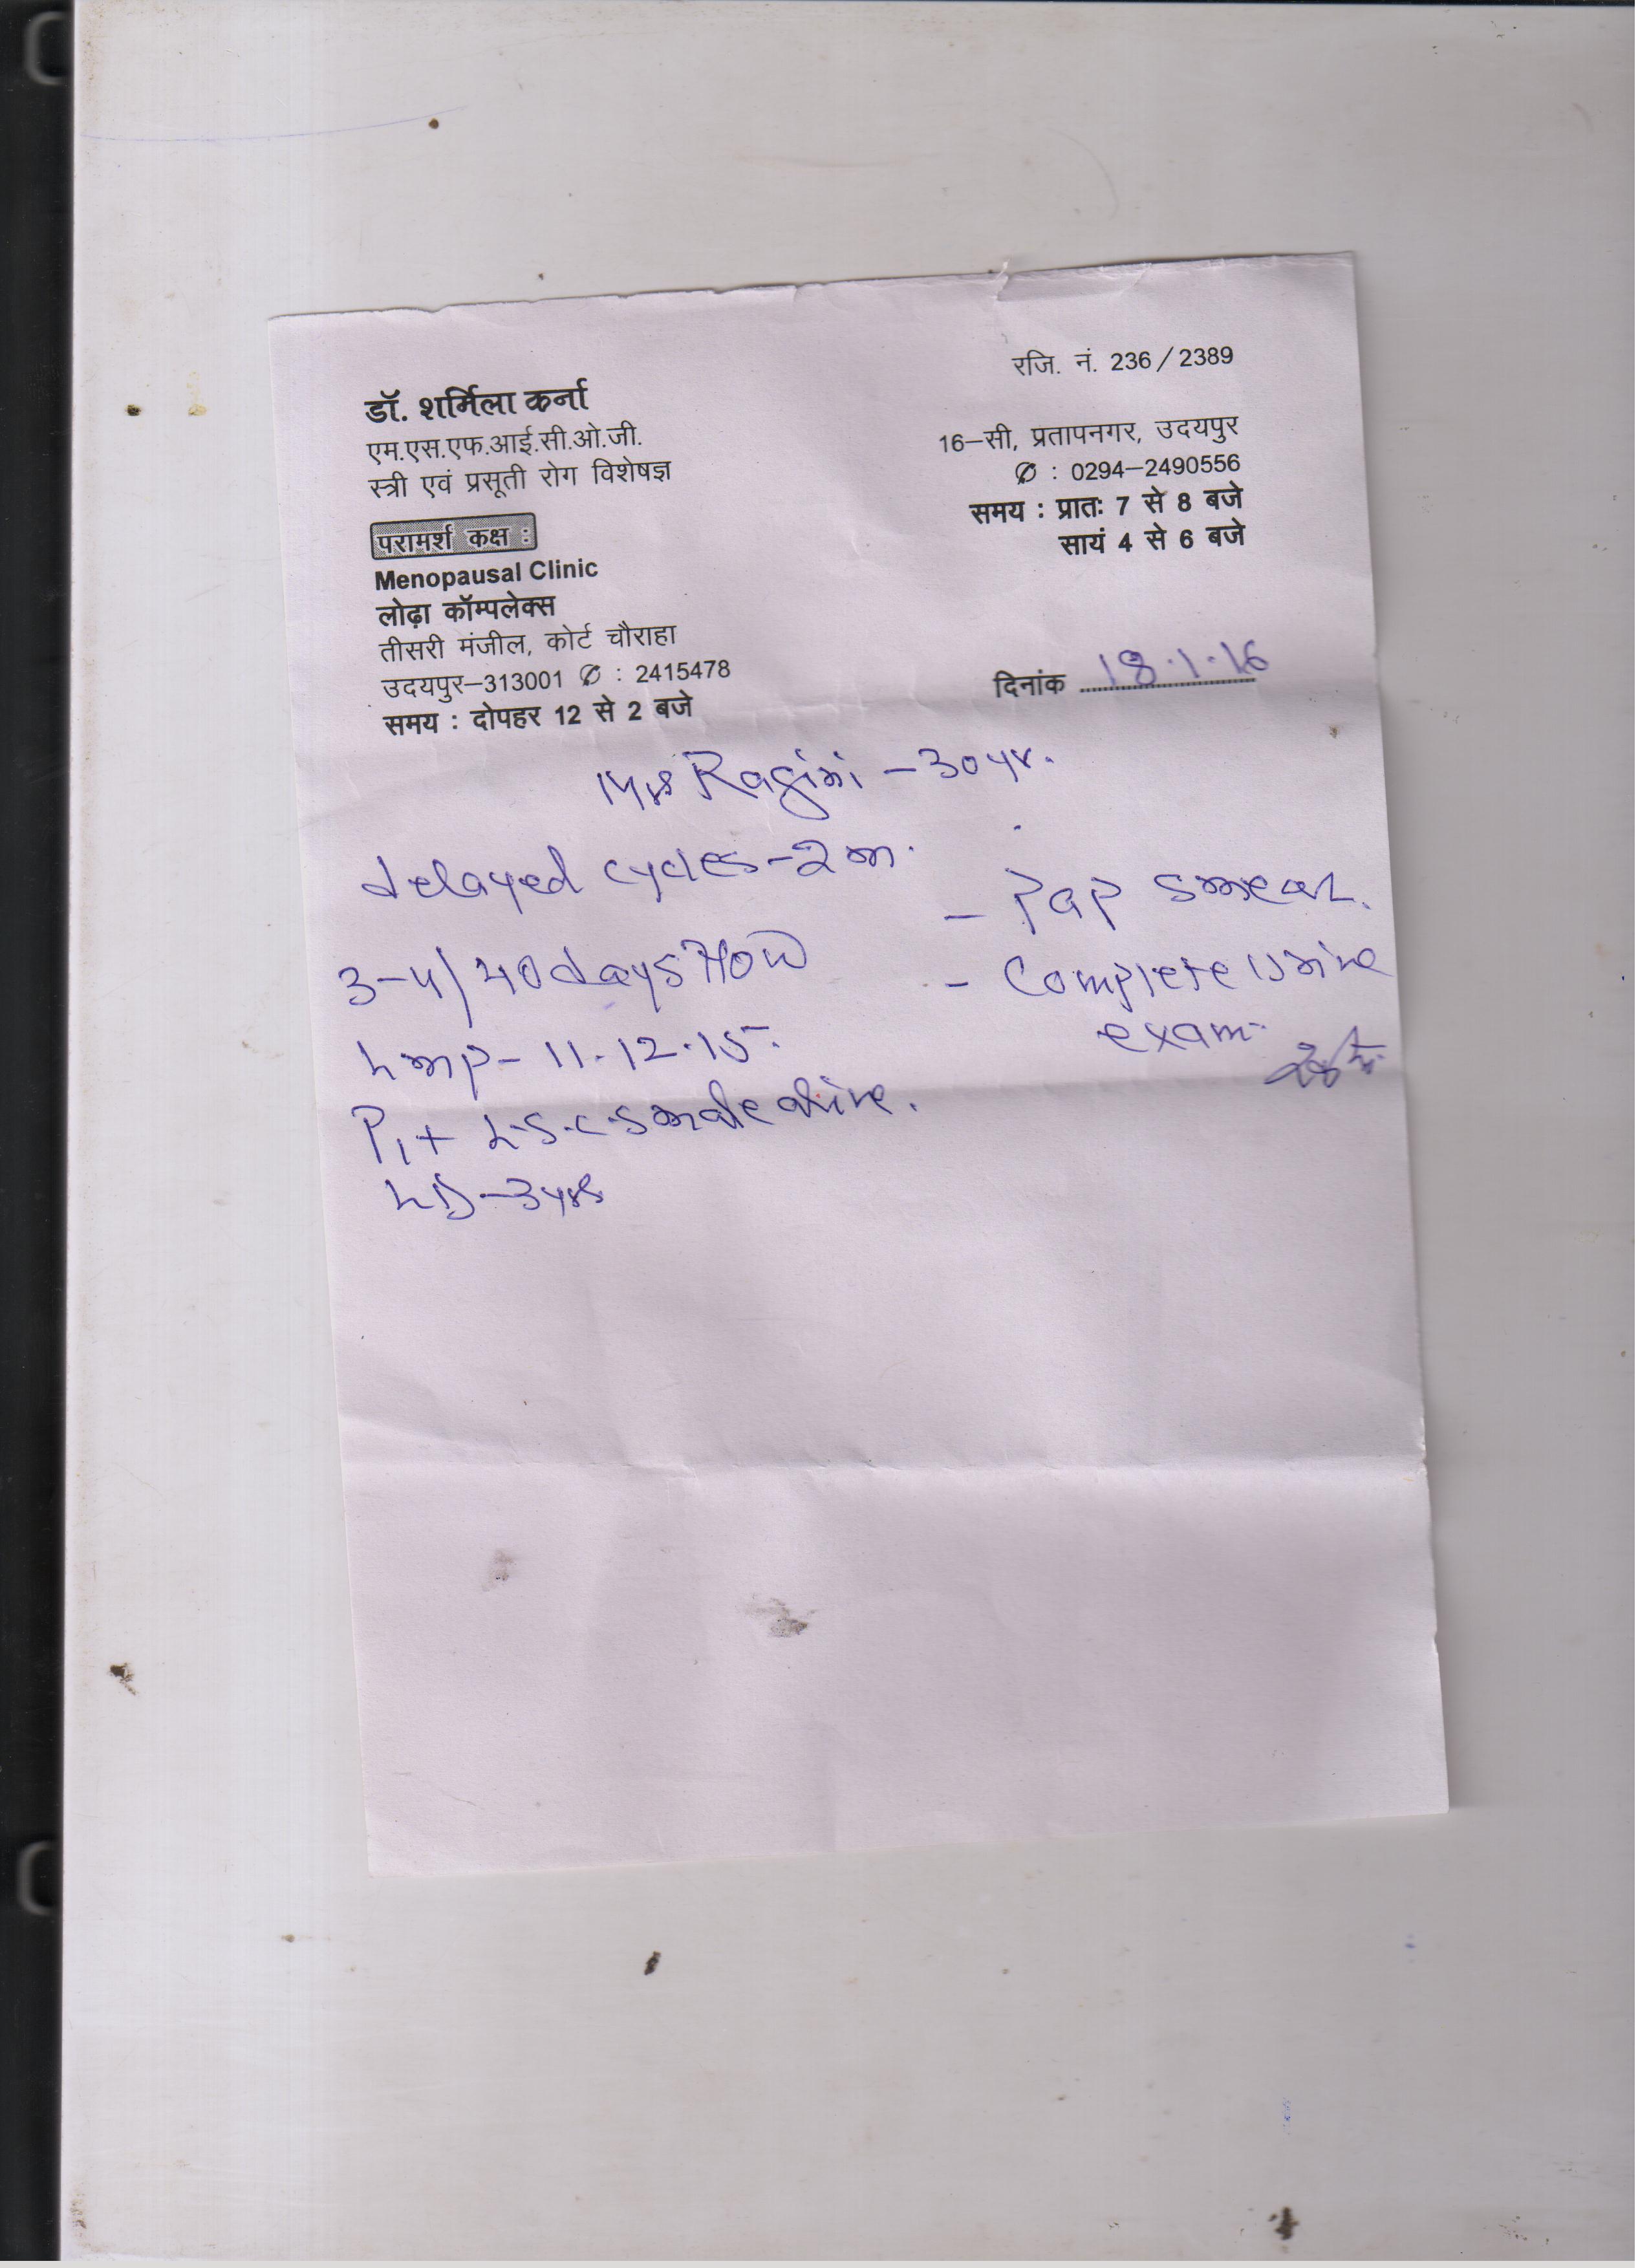 रजि. नं. 236 / 2389
डॉ. शर्मिला कर्ना
एम.एस.एफ.आई.सी.ओ.जी.
स्त्री एवं प्रसूती रोग विशेषज्ञ
परामर्श कक्ष :
Menopausal Clinic
लोढ़ा कॉम्पलेक्स
तीसरी मंजील, कोर्ट चौराहा
उदयपुर–313001 ✆ : 2415478
समय : दोपहर 12 से 2 बजे
16–सी, प्रतापनगर, उदयपुर
✆ : 0294–2490556
समय : प्रातः 7 से 8 बजे
सायं 4 से 6 बजे
दिनांक 18.1.16
Mrs Ragini – 30 yr.
delayed cycles – 2 m.
3-4/40 days flow
Lmp – 11.12.15.
P1+ L.S.C.S male alive.
LD – 3 yrs
– Pap smear.
– Complete urine
exam.